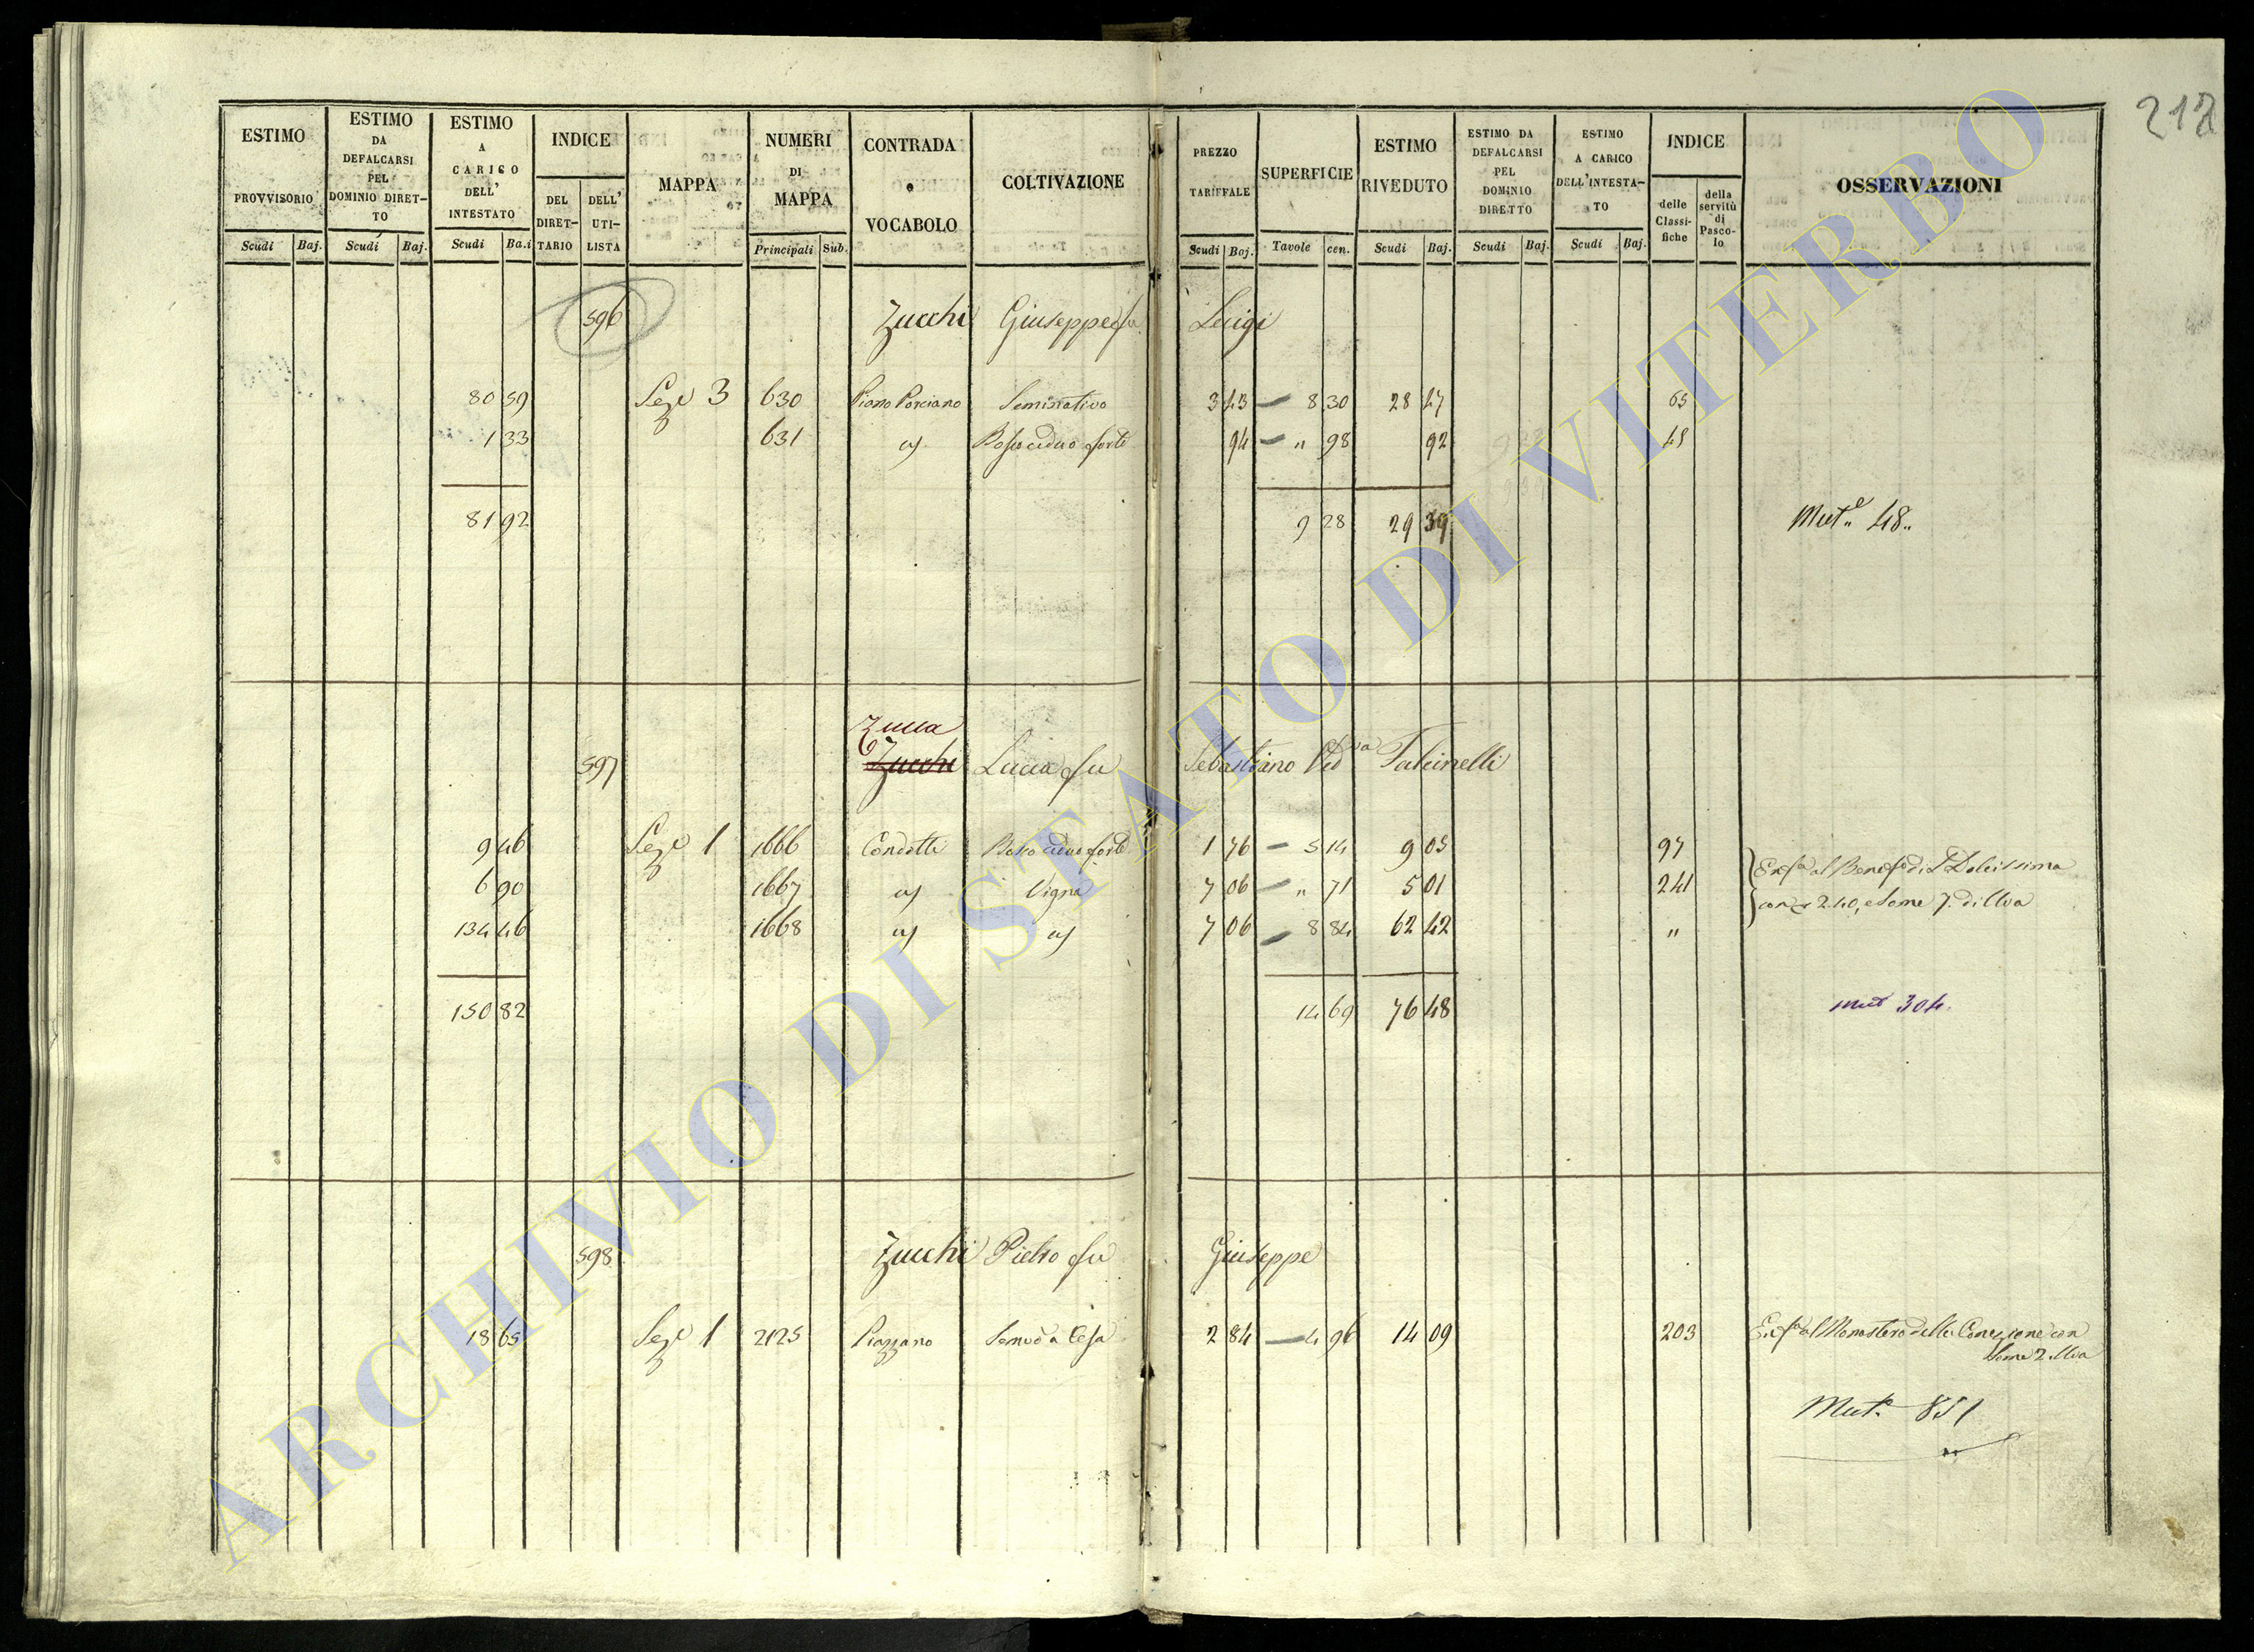 212
ESTIMO PROVVISORIO Scudi Baj.
ESTIMO DA DEFALCARSI PEL DOMINIO DIRET-TO Scudi Baj.
ESTIMO A CARICO DELL' INTESTATO Scudi Ba.i
INDICE DEL DIRET-TARIO DELL' UTI-LISTA
MAPPA
NUMERI DI MAPPA Principali Sub.
CONTRADA o VOCABOLO
COLTIVAZIONE
PREZZO TARIFFALE Scudi Baj.
SUPERFICIE Tavole cen.
ESTIMO RIVEDUTO Scudi Baj.
ESTIMO DA DEFALCARSI PEL DOMINIO DIRETTO Scudi Baj.
ESTIMO A CARICO DELL'INTESTA-TO Scudi Baj.
INDICE delle Classi-fiche della servitù di Pasco-lo
OSSERVAZIONI
596 Zucchi Giuseppe fu Luigi
80 59 Sez.e 3 630 Piano Porciano Seminativo 3 43 8 30 28 47 65
1 33 631 Bosco ceduo forte 94 " 98 92 45
81 92 9 28 29 39 Mut.e 48
Zucca
597 Zucchi Lucia fu Sebastiano Ved.va Falcinelli
9 46 Sez.e 1 1666 Condotti Bosco ceduo forte 1 76 5 14 9 05 97
6 90 1667 Vigna 7 06 " 71 5 01 241 al Benef.o di Dolcissima
134 46 1668 7 06 8 84 62 42 " con 2.40, e Some 7 di Uva
150 82 14 69 76 48 mut 304
598 Zucchi Pietro fu Giuseppe
18 65 Sez.e 1 2125 Piazzano 2 84 4 96 14 09 203 al Monastero della Concezione con
Some 2 Uva
Mut. 851
ARCHIVIO DI STATO DI VITERBO